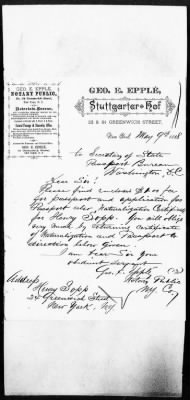 GEO. E. EPPLE,
NOTARY PUBLIC,
GEO. E. EPPLE,
Stuttgarter Hof
32 & 34 GREENWICH STREET.
New York, May 9th 1888
To Secretary of State
Passport Bureau
Washington, D.C.
Dear Sir!
Please find enclosed $1.00 for
fee for passport and application for
Passport also Naturalization Certificate
for Henry Bopp. You will oblige
very much by returning Certificate
of Naturalization and Passport to
direction below given.
I am Dear Sir You
obedient Servant
Geo. E. Epple
Notary Public
N.Y. Co.
Address
Henry Bopp
34 Greenwich Street
New York. NY